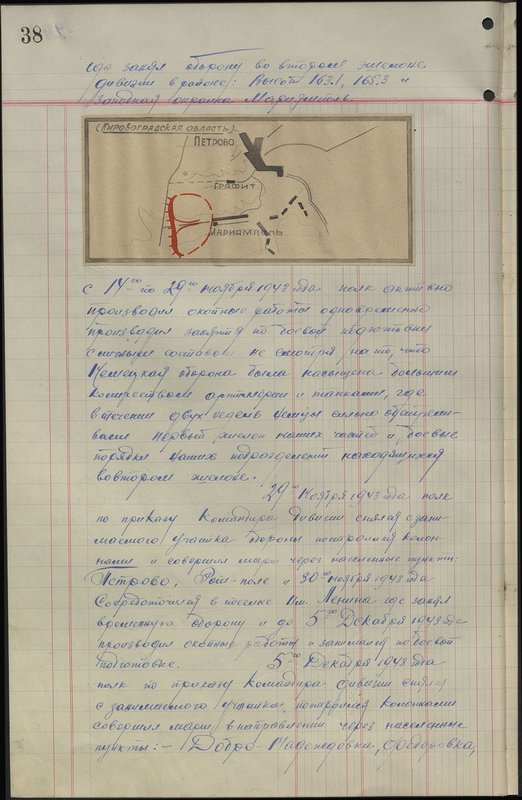 38
где занял оборону во втором эшелоне
дивизии в районе: Высот 163.1, 165.3 и
Западная окраина Мариамполь.
(Кировоградская область)
Петрово
Графит
Мариямполь
с 14го по 29го ноября 1943 года полк активно
производил окопные работы одновременно
производил занятия по боевой подготовки
с личным составом не смотря на то, что
Немецкая оборона была насыщена большим
количеством артиллерии и танками, где
в течении двух недель немцы сильно обстрели-
вали первый эшелон наших частей и боевые
порядки наших подразделений находящихся
во втором эшелоне.
29го Ноября 1943 года полк
по приказу Командира Дивизии снялся с зани-
маемого участка обороны построился колон-
нами и совершил марш через населенные пункты:
Петрово, поле и 30го ноября 1943 года
Сосредоточился в поселке Им. Ленина где занял
временную оборону и до 5го Декабря 1943 года
производил окопные работы и занимался по боевой
подготовке. 5го Декабря 1943 года
полк по приказу Командира дивизии снялся
с занимаемого участка, построился колонками
совершил марш в направлении через населенные
пункты: – Добро-Надеждовка, Федоровка,